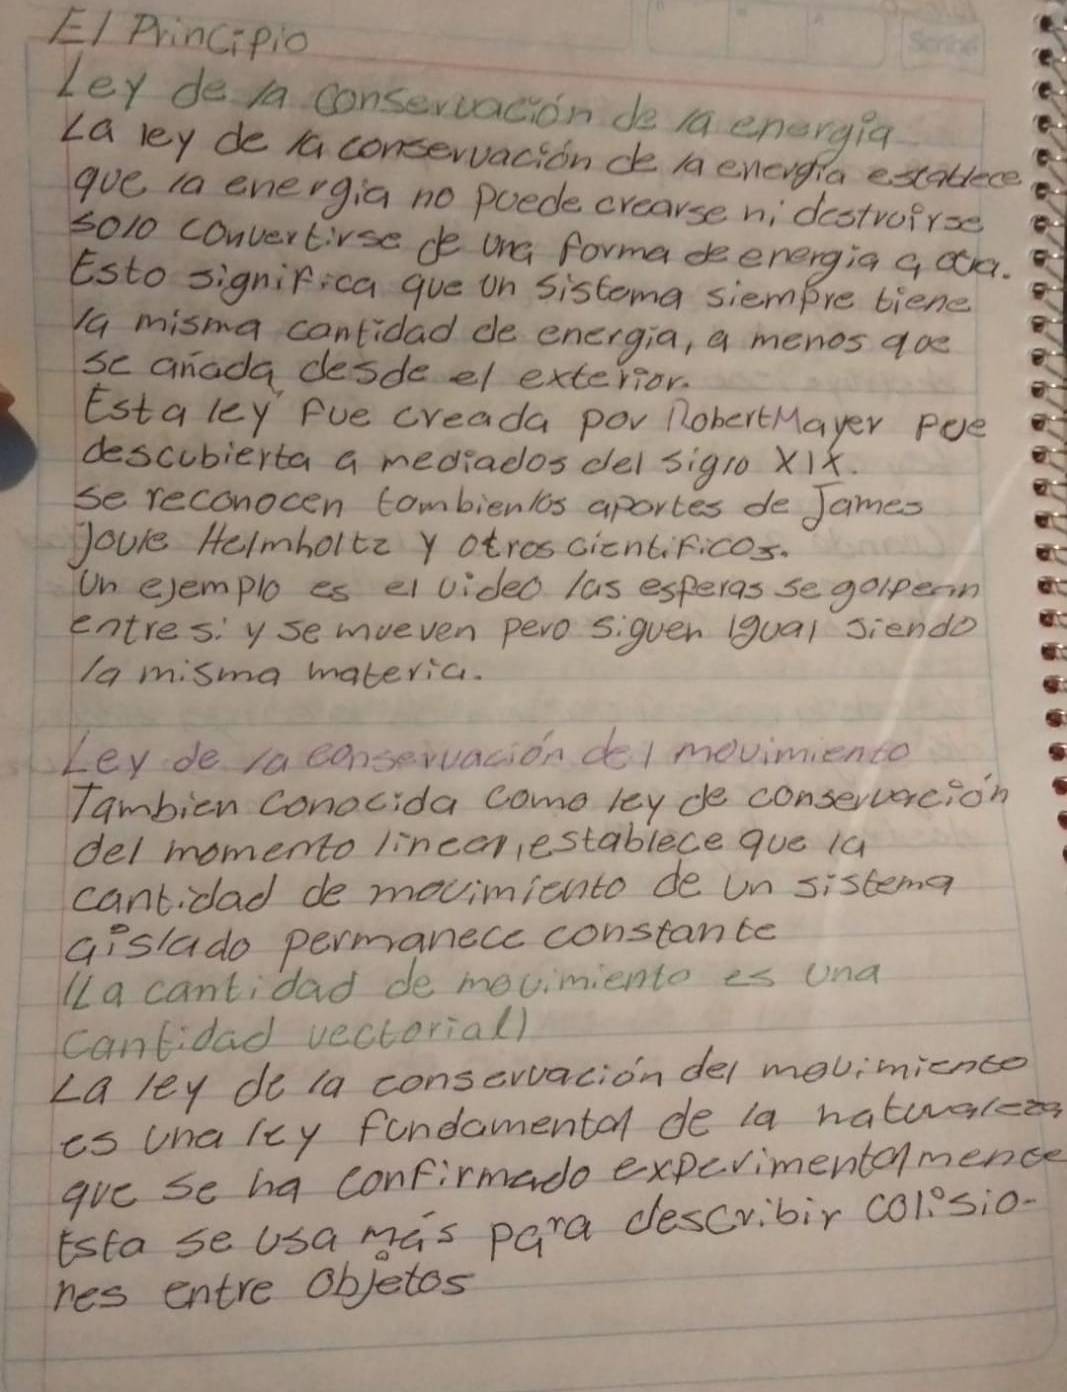 El Principio
Ley de la conservación de la energia
La ley de la conservación de la energía establece
que la energia no puede crearse ni destruirse
solo convertirse de una forma de energia a otra.
Esto significa que un sistema siempre tiene
la misma cantidad de energia, a menos que
se añada desde el exterior.
Esta ley fue creada por Robert Mayer fue
descubierta a mediados del siglo XIX.
Se reconocen tambien los aportes de James
Joule Helmholtz y otros cientificos.
Un ejemplo es el video las esferas se golpean
entre si y se mueven pero siguen igual siendo
la misma materia.
Ley de la conservación del movimiento
Tambien conocida como ley de conservación
del momento lineal, establece que la
cantidad de movimiento de un sistema
aislado permanece constante
(La cantidad de movimiento es una
cantidad vectorial)
La ley de la conservación del movimiento
es una ley fundamental de la naturaleza
que se ha confirmado experimentalmente
Esta se usa más para describir colisio-
nes entre objetos